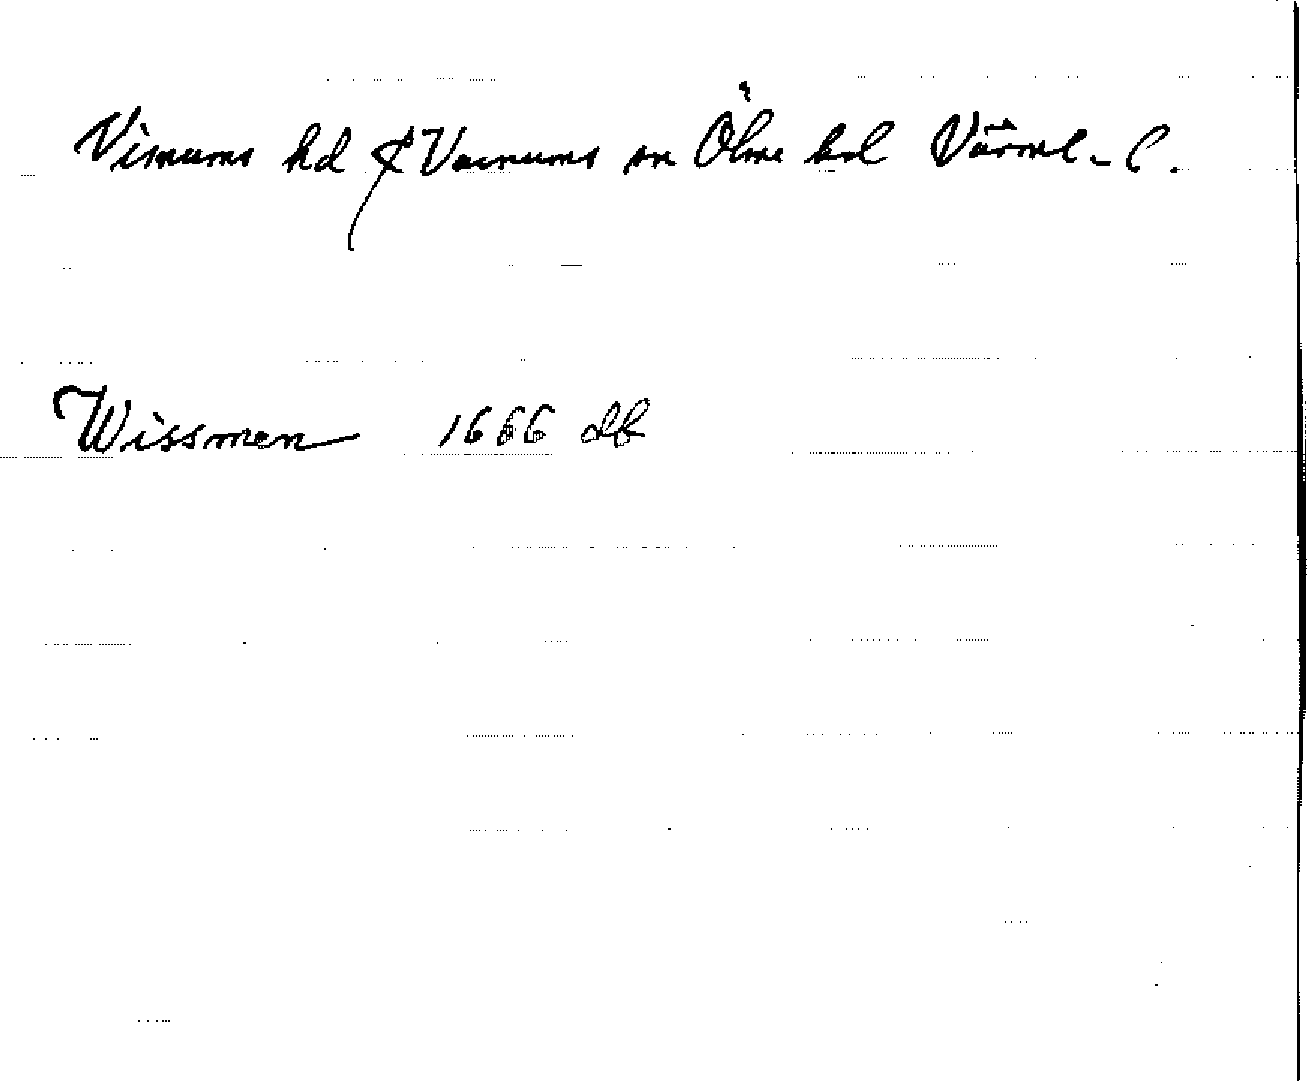 Visnums hd & Varnums sn Ölme hd Värml. l.
Wissmen 1666 db